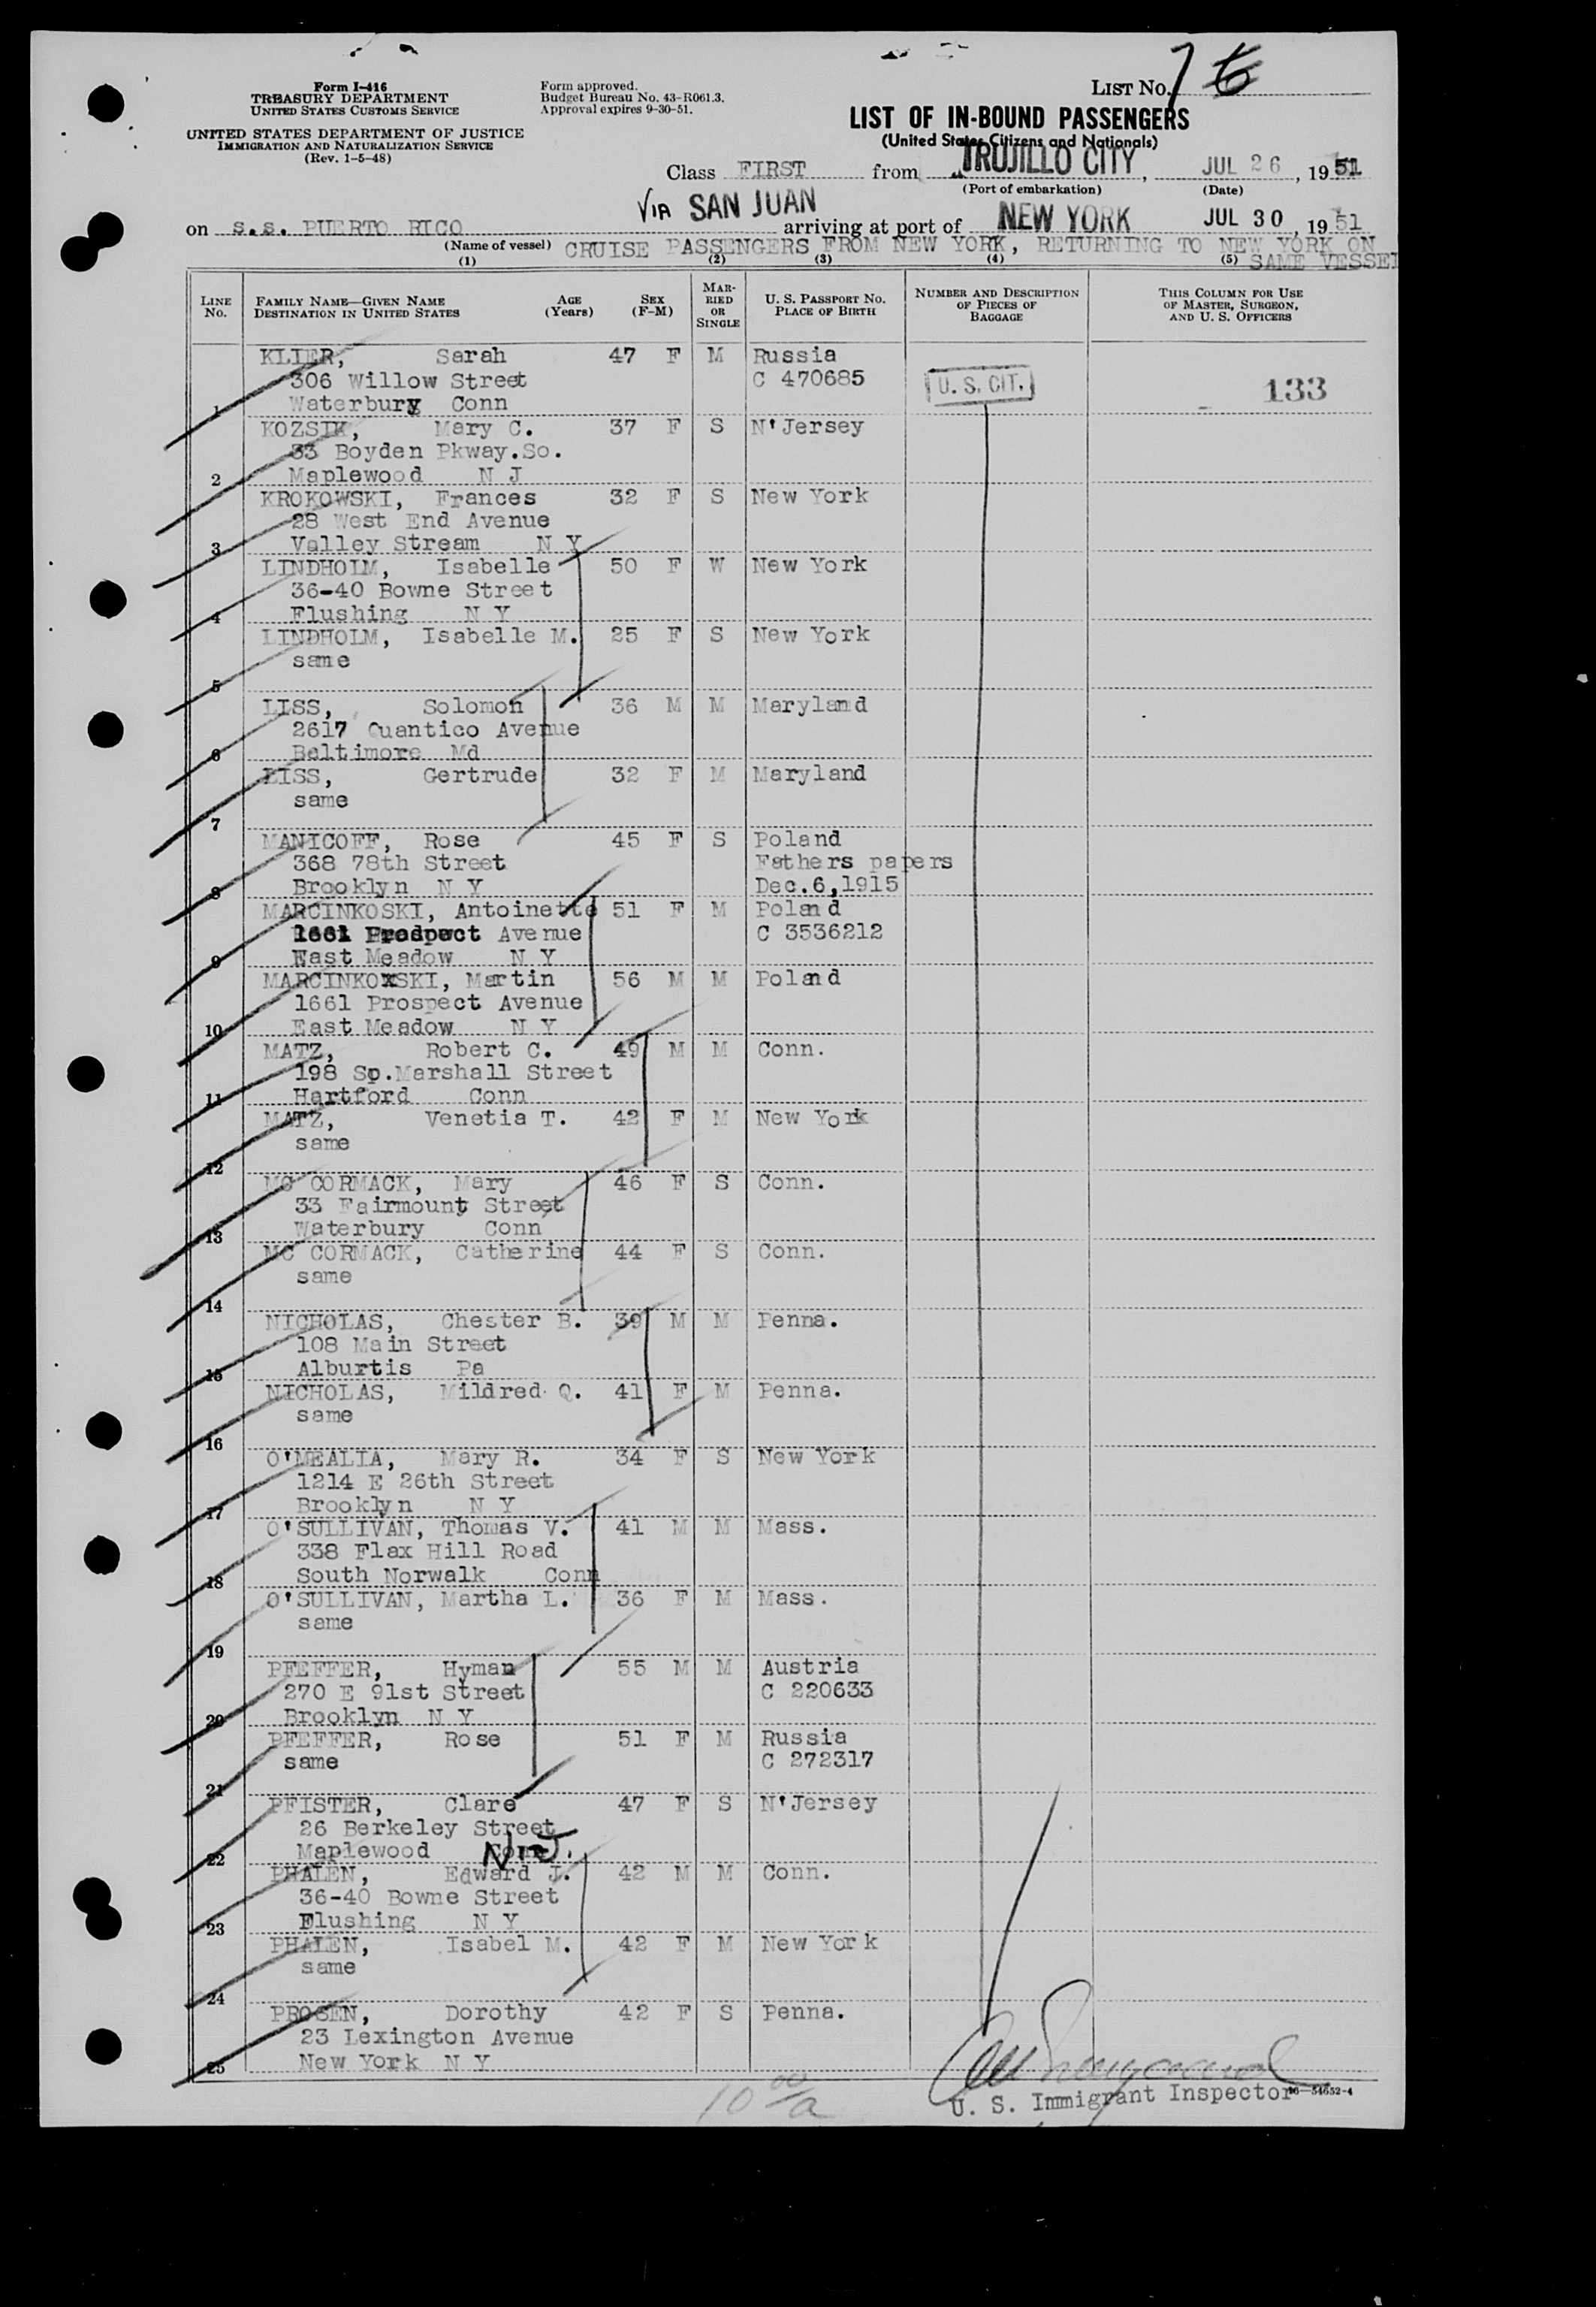 Form I-416
TREASURY DEPARTMENT
UNITED STATES CUSTOMS SERVICE
UNITED STATES DEPARTMENT OF JUSTICE
IMMIGRATION AND NATURALIZATION SERVICE
(Rev. 1-5-48)
Form approved.
Budget Bureau No. 43-R061.3.
Approval expires 9-30-51.
LIST No. 7
LIST OF IN-BOUND PASSENGERS
(United States Citizens and Nationals)
Class FIRST from TRUJILLO CITY, JUL 26, 1951
(Port of embarkation) (Date)
VIA SAN JUAN
on S.S. PUERTO RICO arriving at port of NEW YORK JUL 30, 1951
(Name of vessel) CRUISE PASSENGERS FROM NEW YORK, RETURNING TO NEW YORK ON
SAME VESSEL
(1) (2) (3) (4) (5)
LINE No. FAMILY NAME—GIVEN NAME DESTINATION IN UNITED STATES AGE (Years) SEX (F-M) MARRIED OR SINGLE U. S. PASSPORT NO. PLACE OF BIRTH NUMBER AND DESCRIPTION OF PIECES OF BAGGAGE THIS COLUMN FOR USE OF MASTER, SURGEON, AND U. S. OFFICERS
KLIER, Sarah 47 F M Russia
306 Willow Street C 470685 U. S. CIT. 133
1 Waterbury Conn
KOZSIK, Mary C. 37 F S N'Jersey
33 Boyden Pkway.So.
2 Maplewood N J
KROKOWSKI, Frances 32 F S New York
28 West End Avenue
3 Valley Stream N Y
LINDHOLM, Isabelle 50 F W New York
36-40 Bowne Street
4 Flushing N Y
LINDHOLM, Isabelle M. 25 F S New York
same
5
LISS, Solomon 36 M M Maryland
2617 Quantico Avenue
6 Baltimore Md
LISS, Gertrude 32 F M Maryland
same
7
MANICOFF, Rose 45 F S Poland
368 78th Street Fathers papers
8 Brooklyn N Y Dec.6,1915
MARCINKOSKI, Antoinette 51 F M Poland
1661 Prospect Avenue C 3536212
9 East Meadow N Y
MARCINKOSKI, Martin 56 M M Poland
1661 Prospect Avenue
10 East Meadow N Y
MATZ, Robert C. 49 M M Conn.
198 Sp.Marshall Street
11 Hartford Conn
MATZ, Venetia T. 42 F M New York
same
12
MC CORMACK, Mary 46 F S Conn.
33 Fairmount Street
13 Waterbury Conn
MC CORMACK, Catherine 44 F S Conn.
same
14
NICHOLAS, Chester B. 39 M M Penna.
108 Main Street
15 Alburtis Pa
NICHOLAS, Mildred Q. 41 F M Penna.
same
16
O'MEALIA, Mary R. 34 F S New York
1214 E 26th Street
17 Brooklyn N Y
O'SULLIVAN, Thomas V. 41 M M Mass.
338 Flax Hill Road
18 South Norwalk Conn
O'SULLIVAN, Martha L. 36 F M Mass.
same
19
PFEFFER, Hyman 55 M M Austria
270 E 91st Street C 220633
20 Brooklyn N Y
PFEFFER, Rose 51 F M Russia
same C 272317
21
PFISTER, Clare 47 F S N'Jersey
26 Berkeley Street
22 Maplewood N.J.
PHALEN, Edward J. 42 M M Conn.
36-40 Bowne Street
23 Flushing N Y
PHALEN, Isabel M. 42 F M New York
same
24
PROSEN, Dorothy 42 F S Penna.
23 Lexington Avenue
25 New York N Y
U. S. Immigrant Inspector 16—54652-4